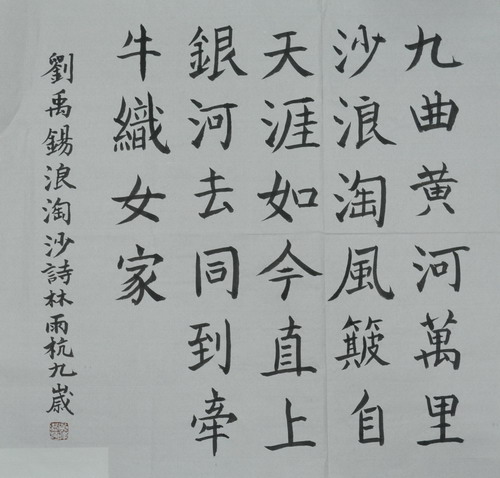 九曲黄河萬里
沙浪淘風簸自
天涯如今直上
銀河去同到牽
牛織女家
劉禹錫浪淘沙詩林雨杭九歲